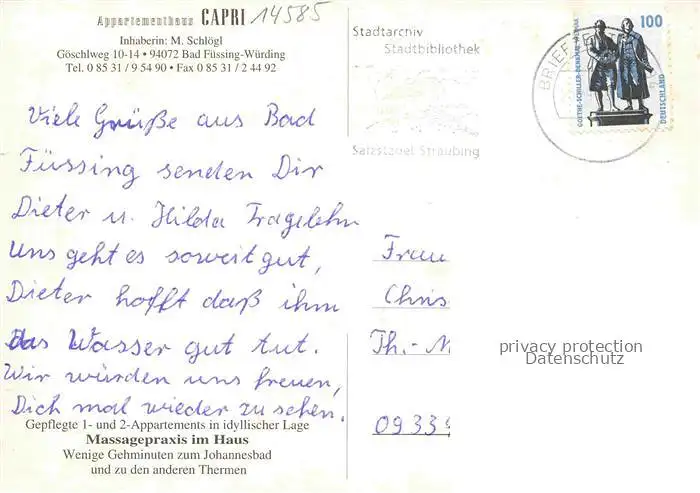 Appartementhaus CAPRI 14585
Inhaberin: M. Schlögl
Göschlweg 10-14 • 94072 Bad Füssing-Würding
Tel. 0 85 31 / 9 54 90 • Fax 0 85 31 / 2 44 92
Viele Grüße aus Bad
Füssing senden Dir
Dieter u. Hilda Fragelehn
Uns geht es soweit gut,
Dieter hofft daß ihm
das Wasser gut tut.
Wir würden uns freuen,
Dich mal wieder zu sehen.
Gepflegte 1- und 2-Appartements in idyllischer Lage
Massagepraxis im Haus
Wenige Gehminuten zum Johannesbad
und zu den anderen Thermen
Stadtarchiv
Stadtbibliothek
Salzstadel Straubing
BRIEF
100
GOETHE-SCHILLER-DENKMAL WEIMAR
DEUTSCHLAND
Frau
Chris
Th.-M
0933
privacy protection
Datenschutz